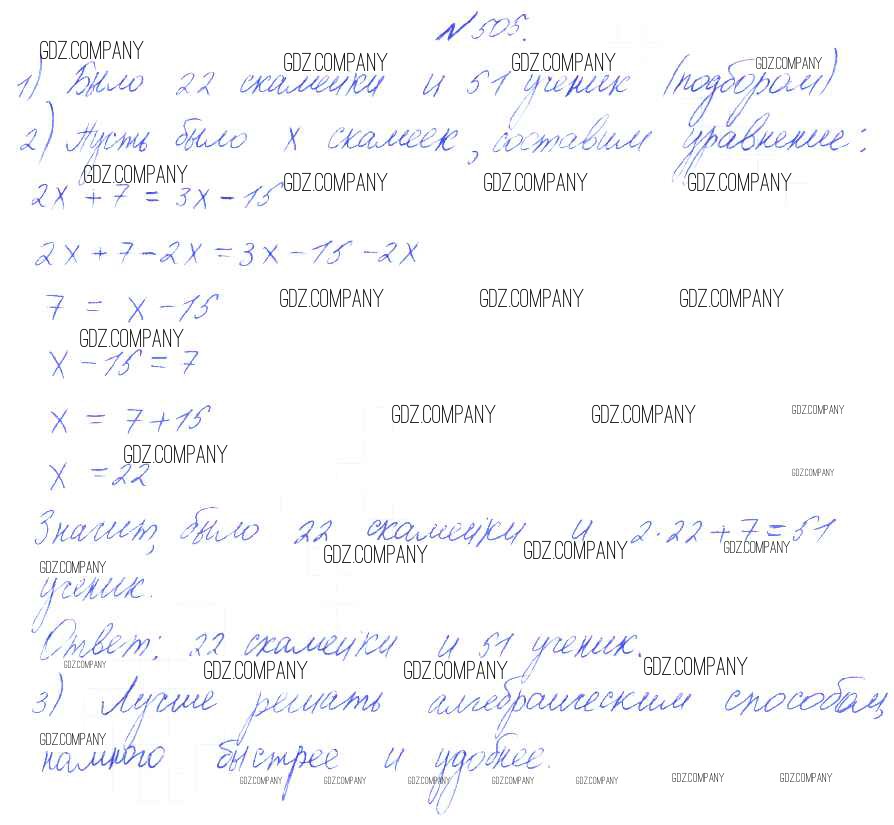 N 505.
GDZ.COMPANY GDZ.COMPANY GDZ.COMPANY GDZ.COMPANY
1) Было 22 скамейки и 51 ученик (подбором)
2) Пусть было х скамеек, составим уравнение:
GDZ.COMPANY GDZ.COMPANY GDZ.COMPANY GDZ.COMPANY
2х + 7 = 3х - 15
2х + 7 - 2х = 3х - 15 - 2х
7 = х - 15
GDZ.COMPANY GDZ.COMPANY GDZ.COMPANY
GDZ.COMPANY
х - 15 = 7
х = 7 + 15
GDZ.COMPANY GDZ.COMPANY GDZ.COMPANY
GDZ.COMPANY
х = 22
GDZ.COMPANY
Значит, было 22 скамейки и 2·22 + 7 = 51
GDZ.COMPANY GDZ.COMPANY GDZ.COMPANY
GDZ.COMPANY
ученик.
Ответ: 22 скамейки и 51 ученик.
GDZ.COMPANY GDZ.COMPANY GDZ.COMPANY GDZ.COMPANY
3) Лучше решать алгебраическим способом,
GDZ.COMPANY
намного быстрее и удобнее.
GDZ.COMPANY GDZ.COMPANY GDZ.COMPANY GDZ.COMPANY GDZ.COMPANY GDZ.COMPANY GDZ.COMPANY